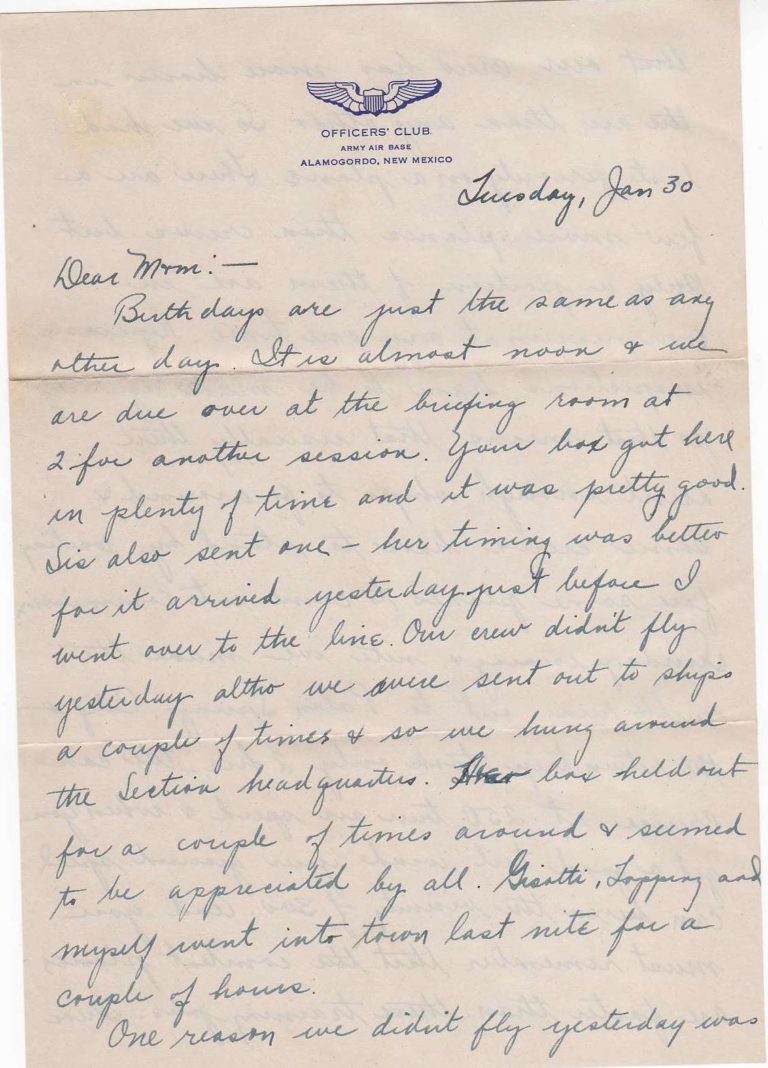 OFFICERS' CLUB.
ARMY AIR BASE
ALAMOGORDO, NEW MEXICO
Tuesday, Jan 30
Dear Mom: —
Birthdays are just the same as any
other day. It is almost noon & we
are due over at the briefing room at
2 for another session. Your box got here
in plenty of time and it was pretty good.
Sis also sent one – her timing was better
for it arrived yesterday just before I
went over to the line. Our crew didn't fly
yesterday altho we were sent out to ships
a couple of times & so we hung around
the Section headquarters. box held out
for a couple of times around & seemed
to be appreciated by all. Gisotti, Topping and
myself went into town last nite for a
couple of hours.
One reason we didn't fly yesterday was